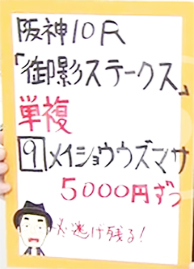 阪神10R
「御影ステークス」
単複
9 メイショウウズマサ
5000円ずつ
必逃げ残る!